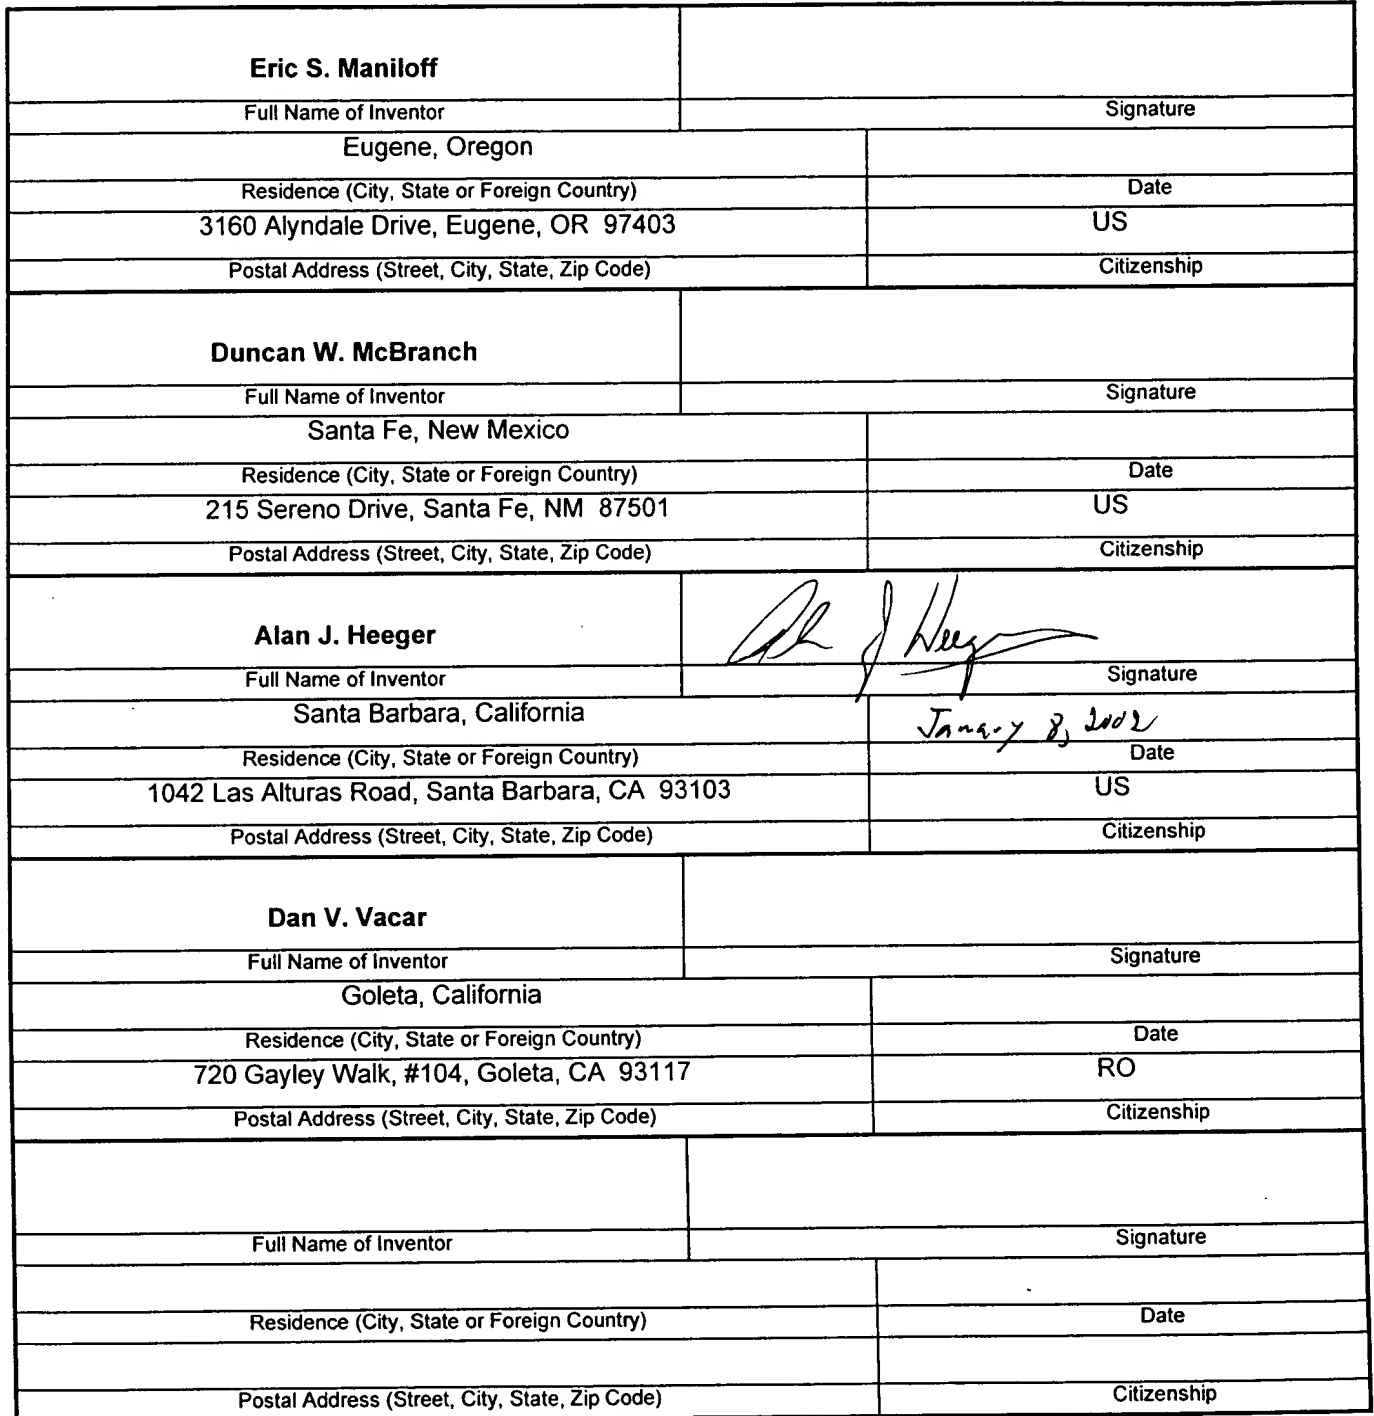 Eric S. Maniloff
Full Name of Inventor
Signature
Eugene, Oregon
Residence (City, State or Foreign Country)
Date
3160 Alyndale Drive, Eugene, OR 97403
US
Postal Address (Street, City, State, Zip Code)
Citizenship
Duncan W. McBranch
Full Name of Inventor
Signature
Santa Fe, New Mexico
Residence (City, State or Foreign Country)
Date
215 Sereno Drive, Santa Fe, NM 87501
US
Postal Address (Street, City, State, Zip Code)
Citizenship
Alan J. Heeger
Alan J Heeger
Full Name of Inventor
Signature
Santa Barbara, California
January 8, 2002
Residence (City, State or Foreign Country)
Date
1042 Las Alturas Road, Santa Barbara, CA 93103
US
Postal Address (Street, City, State, Zip Code)
Citizenship
Dan V. Vacar
Full Name of Inventor
Signature
Goleta, California
Residence (City, State or Foreign Country)
Date
720 Gayley Walk, #104, Goleta, CA 93117
RO
Postal Address (Street, City, State, Zip Code)
Citizenship
Full Name of Inventor
Signature
Residence (City, State or Foreign Country)
Date
Postal Address (Street, City, State, Zip Code)
Citizenship